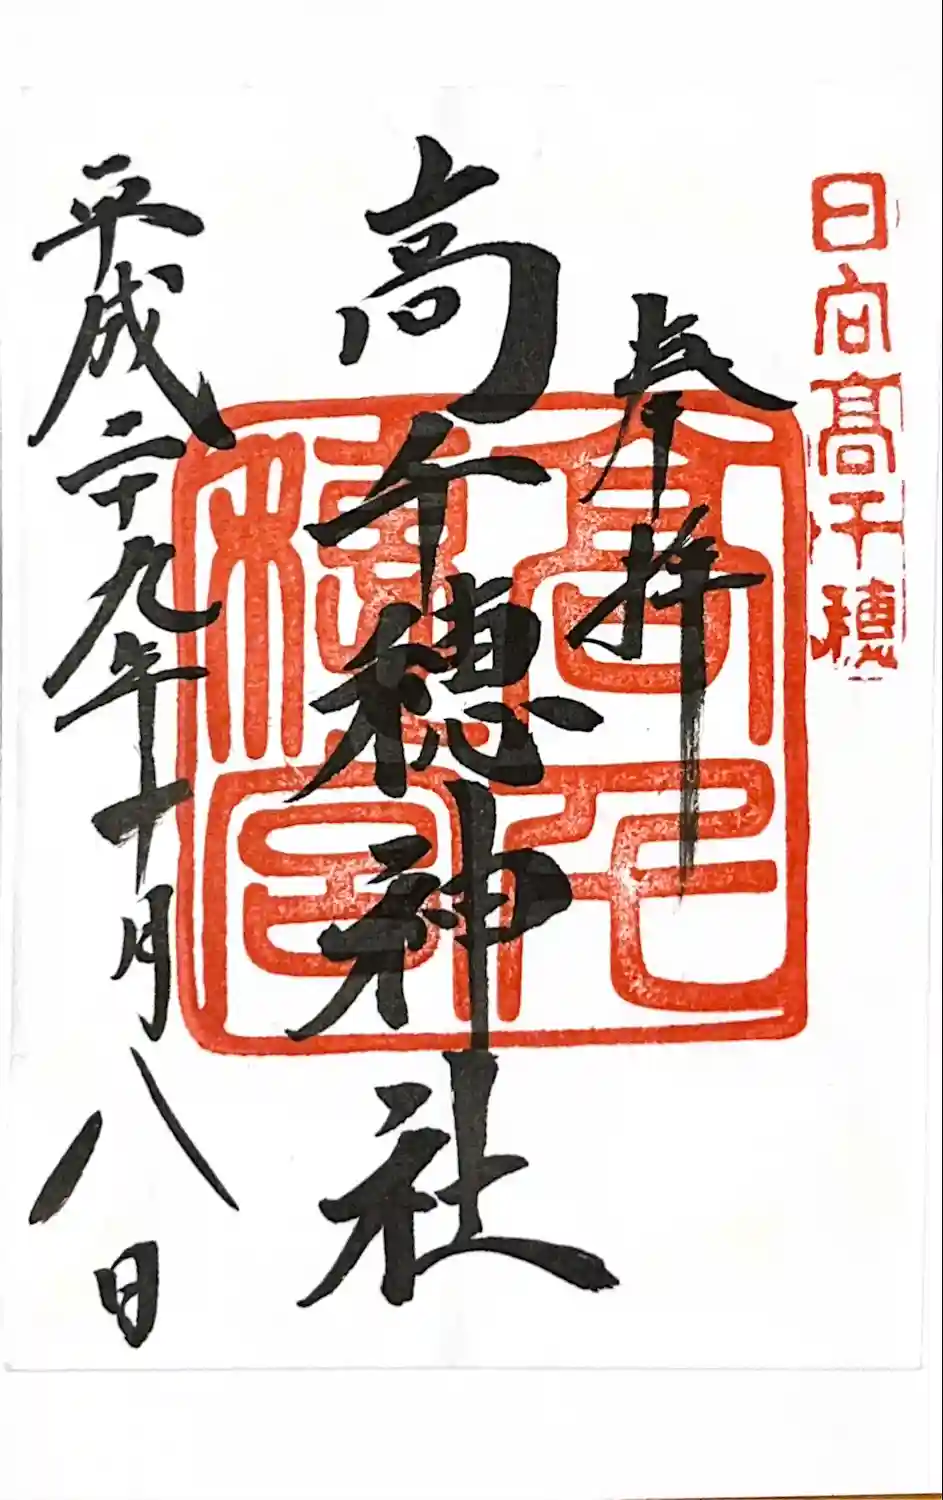 日向高千穂
奉拝
高千穂神社
平成二十九年十月八日
高千
穂宮